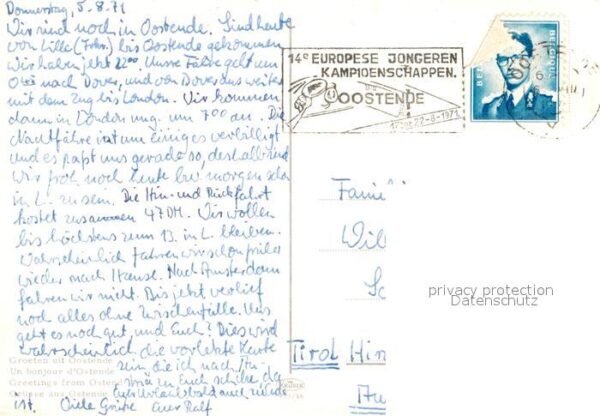 Donnerstag, 5.8.71
Wir sind noch in Oostende. Sind heute
von Lille (Fr) bis Oostende gekommen
Wir haben jetzt 22⁰⁰. Unsre Fähre geht um
nach Dover, und von Dover aus weiter
mit dem Zug bis London. Wir kommen
dann in London ung. um 7⁰⁰ an. Die
Nachtfähre ist um einiges verbilligt
und es paßt uns gerade so, deshalb sind
wir froh noch heute bzw morgen schon
in L. zu sein. Die Hin- und Rückfahrt
kostet zusammen 47 DM. Wir wollen
bis höchstens zum 13. in L. bleiben.
Wahrscheinlich fahren wir schon früher
wieder nach Hause. Nach Amsterdam
fahren wir nicht. Bis jetzt verlief
noch alles ohne Zwischenfälle. Uns
geht es noch gut, und Euch? Dies wird
wahrscheinlich die vorletzte Karte
sein die ich nach
Euch schicke, da
Euer Urlaub bald auch zuende
ist. Viele Grüße Euer Ralf
Groeten uit Oostende
Un bonjour d'Ostende
Greetings from Ostend
Grüsse aus Ostende
14e EUROPESE JONGEREN
KAMPIOENSCHAPPEN.
OOSTENDE
22-8-1971
BELGIE
BELGIQUE
Fami
Wil
Tirol Hin
privacy protection
Datenschutz